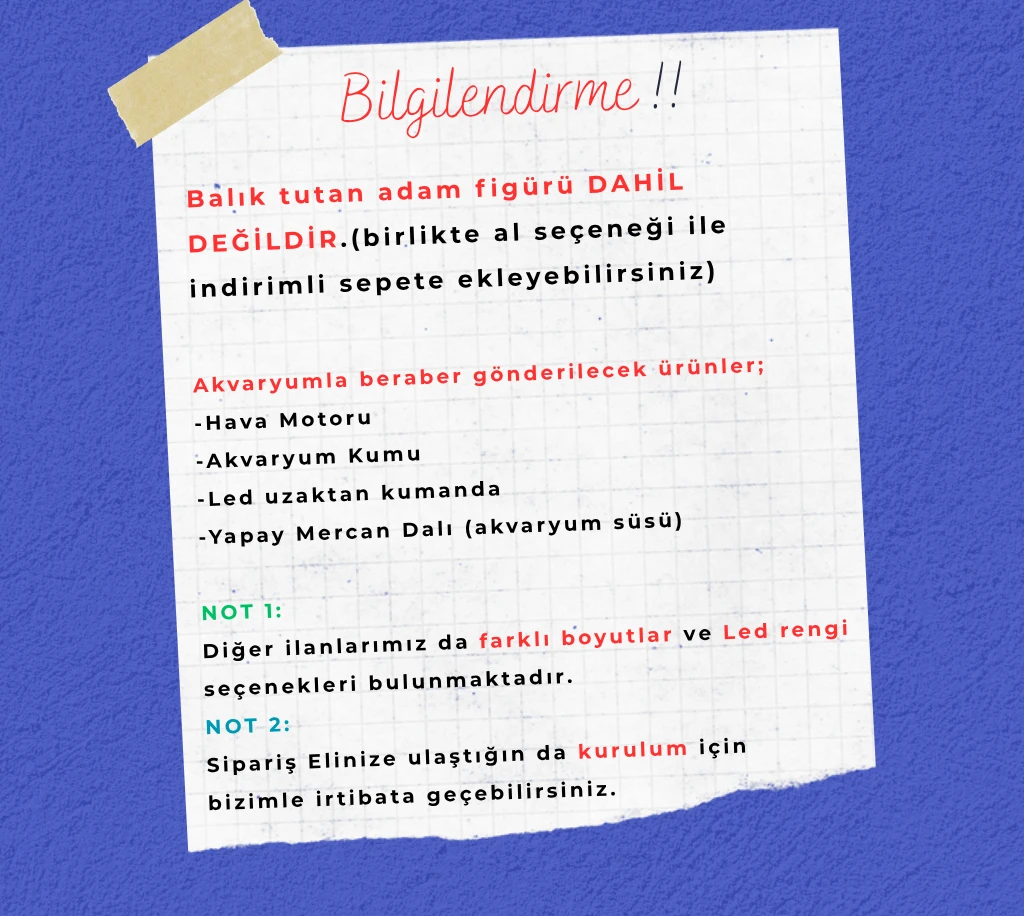 Bilgilendirme !!
Balık tutan adam figürü DAHİL
DEĞİLDİR.(birlikte al seçeneği ile
indirimli sepete ekleyebilirsiniz)
Akvaryumla beraber gönderilecek ürünler;
-Hava Motoru
-Akvaryum Kumu
-Led uzaktan kumanda
-Yapay Mercan Dalı (akvaryum süsü)
NOT 1:
Diğer ilanlarımız da farklı boyutlar ve Led rengi
seçenekleri bulunmaktadır.
NOT 2:
Sipariş Elinize ulaştığın da kurulum için
bizimle irtibata geçebilirsiniz.